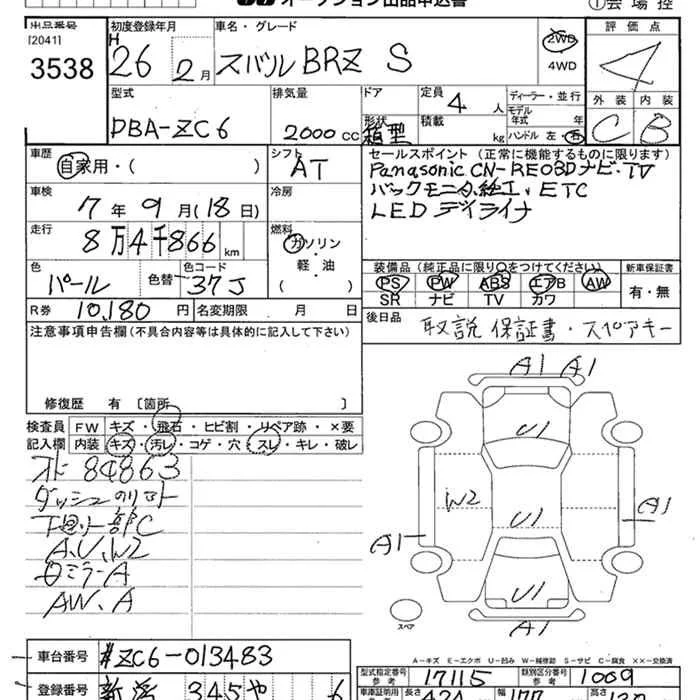 オークション出品申込書 ①会場控
出品番号 初度登録年月 車名・グレード 評価点
[2041] H
3538 26 2月 スバル BRZ S 2WD 4
4WD
型式 排気量 ドア 定員 ディーラー・並行 外装 内装
DBA-ZC6 2000cc 4人 モデル年式 年 C B
形状 箱型 積載 kg ハンドル 左・右
車歴 シフト セールスポイント (正常に機能するものに限ります)
自家用・( ) AT Panasonic CN-RE03Dナビ・TV
車検 冷房 ETC
7年 9月(18日) LED
走行 燃料
8万4千866km ガソリン
軽・油
( )
色 色コード 装備品(純正品に限り○をつけてください) 新車保証書
パール 色替 37J PS PW ABS エアB AW 有・無
SR ナビ TV カワ
R券 10,180円 名変期限 月 日 後日品 取説 保証書・スペアキー
注意事項申告欄(不具合内容等は具体的に記入して下さい)
修復歴 有 〔箇所 〕
検査員 FW キズ・飛石・ヒビ割・リペア跡・×要
記入欄 内装 キズ・汚レ・コゲ・穴・スレ・キレ・破レ
84863
下廻り一部C
A,U,W2
ミラーA
AW、A
A1 A1
U1
W2 U1 A1
A1
U1
スペア A1
A-キズ E-エクボ U-凹み W-補修跡 S-サビ C-腐食 XX-交換済
車台番号 #ZC6-013483
型式指定番号 参考 17115 類別区分番号 参考 1009
登録番号 新潟 345 や 6
車庫証明用 参考 長さ 424 幅 177 高さ 130